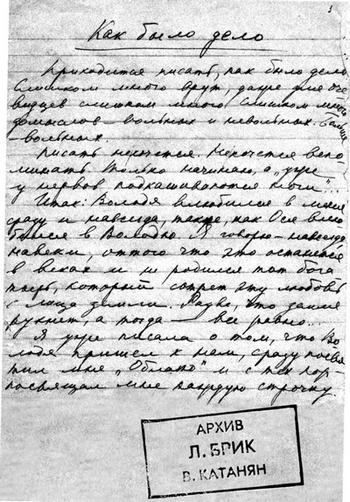 3
Как было дело
Приходится писать, как было дело.
Слишком много врут, даже для оче-
видцев слишком много. Слишком много
домыслов — вольных и невольных. Больше
— вольных.
Писать не хочется. Не хочется вспо-
минать. Только начинаю, а уже
у нервов подкашиваются ноги".
Итак: Володя влюбился в меня
сразу и навсегда, также, как Ося влю-
бился в Володю. Я говорю — навсегда,
навеки, оттого что это останется
в веках и не родился тот бога-
тырь, который сотрет эту любовь
с лица земли.
рухнет, а тогда — все равно...
Я уже писала о том, что Во-
лодя пришел к нам, сразу посвя-
тил мне „Облако" и с тех пор
посвящал мне каждую строчку.
АРХИВ
Л. БРИК
В. КАТАНЯН